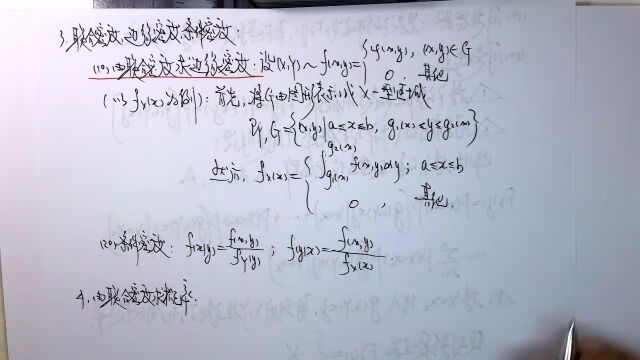 3. 联合密度、边缘密度、条件密度:
(1) 由联合密度求边缘密度: 设(X,Y) ~ f(x,y) = { φ(x,y), (x,y)∈G
0, 其他
(以 f_X(x) 为例): 首先, 将G由图形表示成 X-型区域
即, G = {(x,y) | a≤x≤b, g₁(x)≤y≤g₂(x)}
f_X(x) = { ∫_{g₁(x)}^{g₂(x)} f(x,y)dy ; a≤x≤b
0, 其他
(2) 条件密度: f(x|y) = f(x,y)/f_Y(y) ; f(y|x) = f(x,y)/f_X(x)
4. 由联合密度求概率: